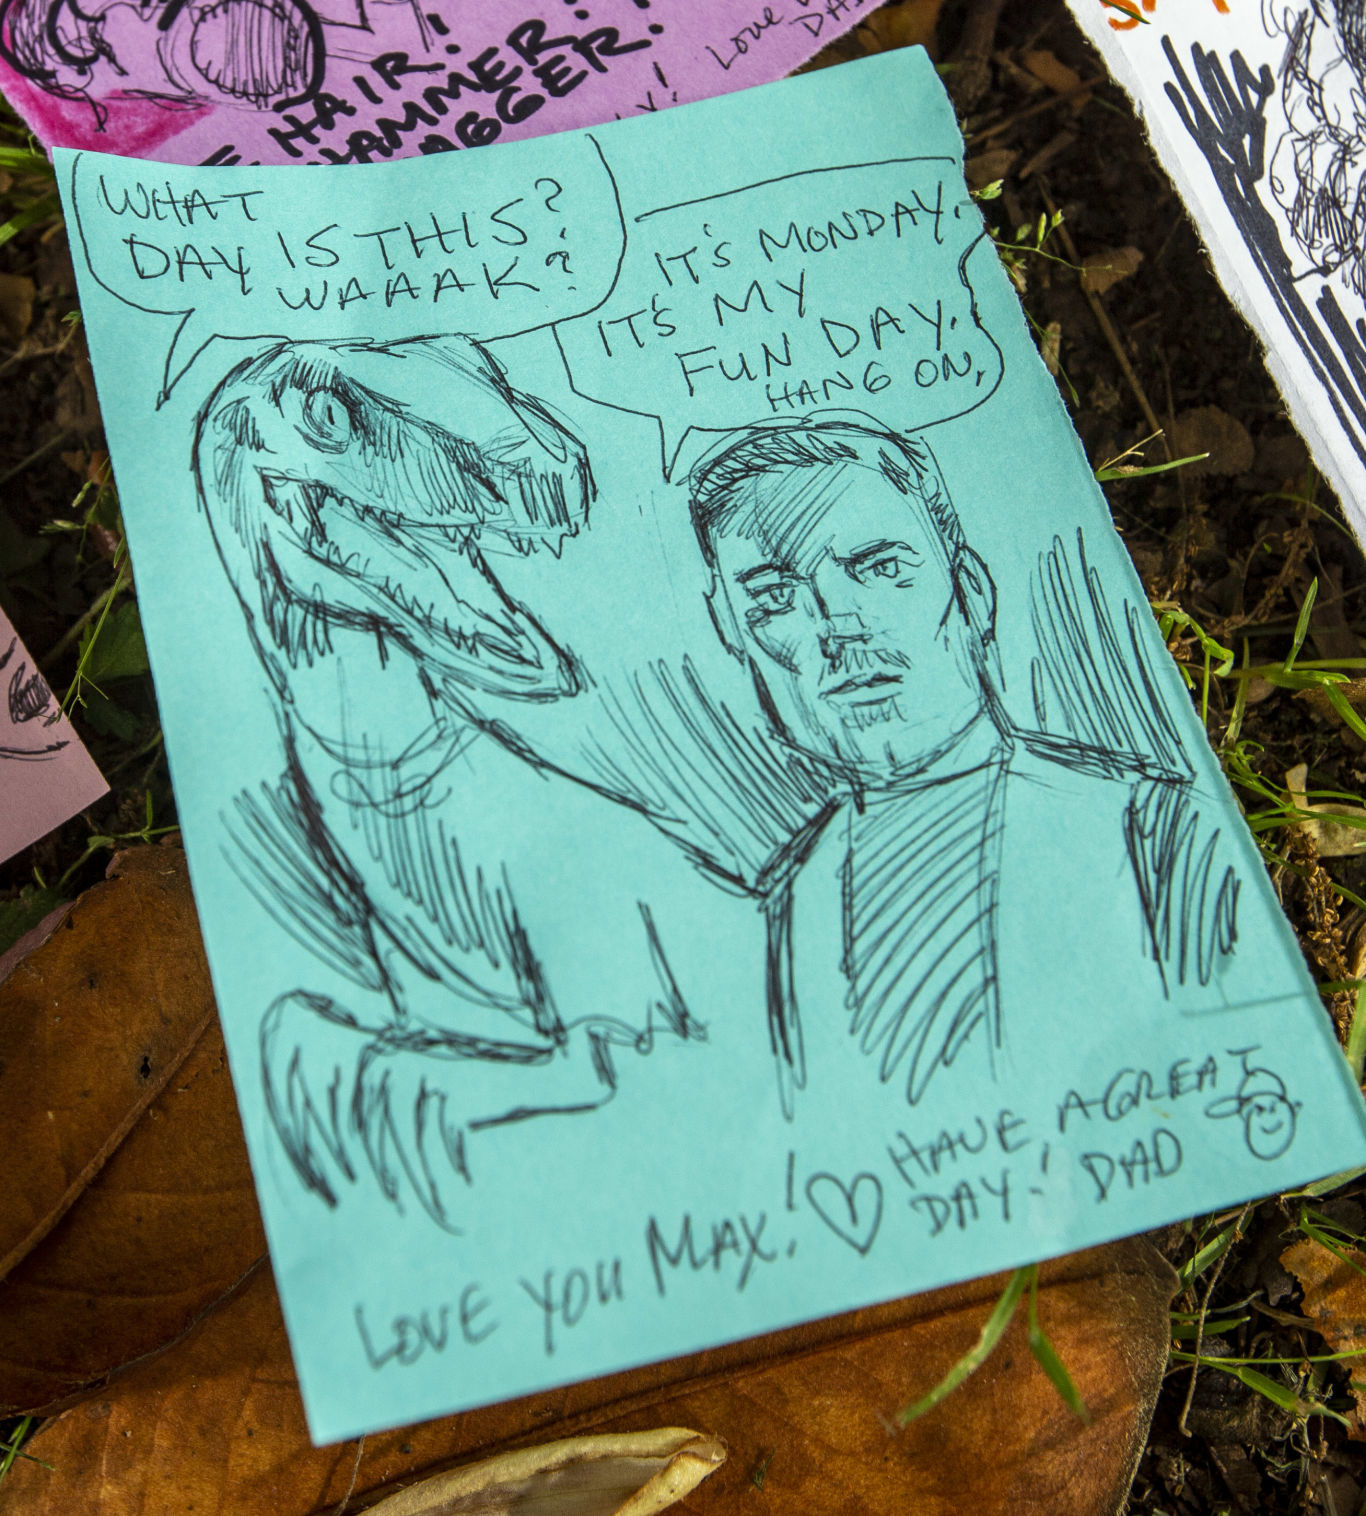 HAIR!
HAMMER!
AGGER!
Love
DA
Y!
WHAT
DAY IS THIS?
WAAAK?
IT'S MONDAY.
IT'S MY
FUN DAY.
HANG ON,
LOVE YOU MAX! HAVE A GREAT
DAY! DAD